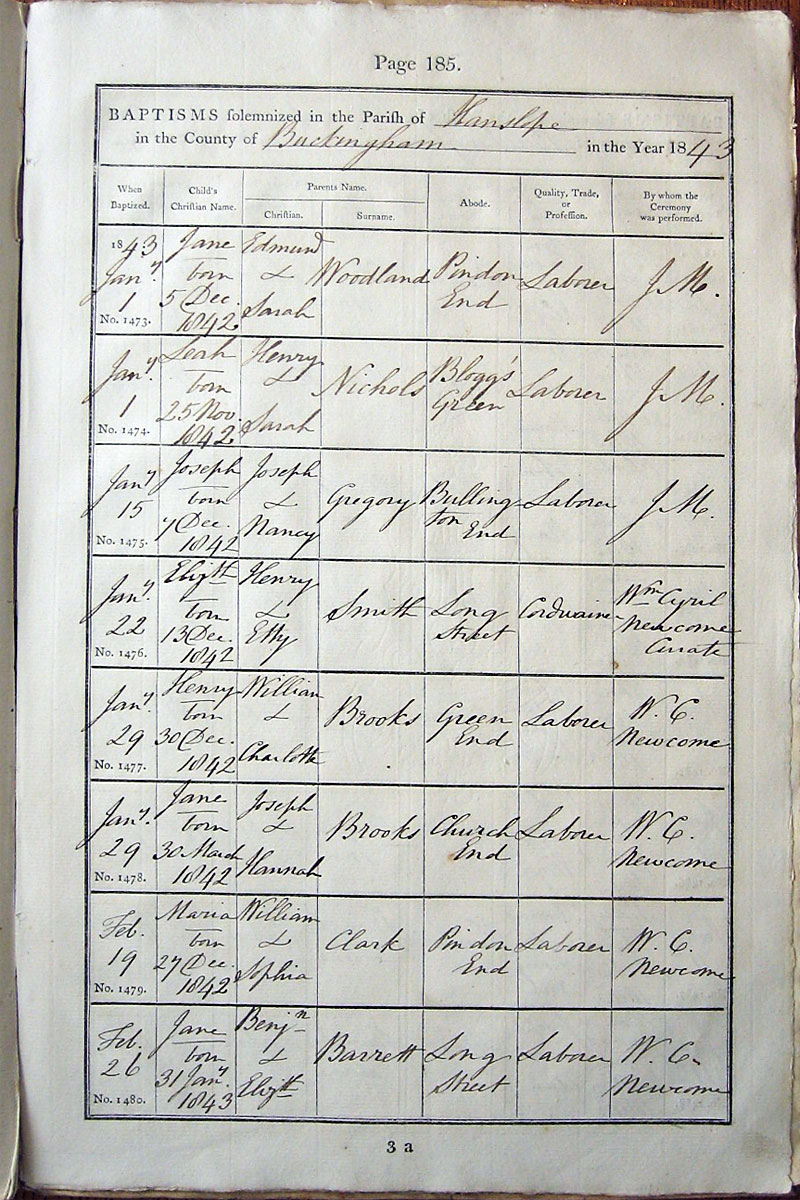 Page 185.
BAPTISMS solemnized in the Parish of Hanslope
in the County of Buckingham in the Year 1843
When Baptized. Child's Christian Name. Parents Name. Christian. Surname. Abode. Quality, Trade, or Profession. By whom the Ceremony was performed.
1843 Jany. 1 No. 1473. Jane born 5 Dec. 1842 Edmund & Sarah Woodland Pindon End Laborer J. M.
Jany. 1 No. 1474. Leah born 25 Nov. 1842 Henry & Sarah Nichols Blogg's Green Laborer J. M.
Jany 15 No. 1475. Joseph born 7 Dec. 1842 Joseph & Nancy Gregory Bullington End Laborer J. M.
Jany. 22 No. 1476. Elizth born 13 Dec. 1842 Henry & Etty Smith Long Street Cordwainer Wm Cyril Newcome Curate
Jany. 29 No. 1477. Henry born 30 Dec. 1842 William & Charlotte Brooks Green End Laborer W. C. Newcome
Jany. 29 No. 1478. Jane born 30 March 1842 Joseph & Hannah Brooks Church End Laborer W. C. Newcome
Feb. 19 No. 1479. Maria born 27 Dec. 1842 William & Sophia Clark Pindon End Laborer W. C. Newcome
Feb. 26 No. 1480. Jane born 31 Jany. 1843 Benjn & Elizth Barrett Long Street Laborer W. C. Newcome
3 a